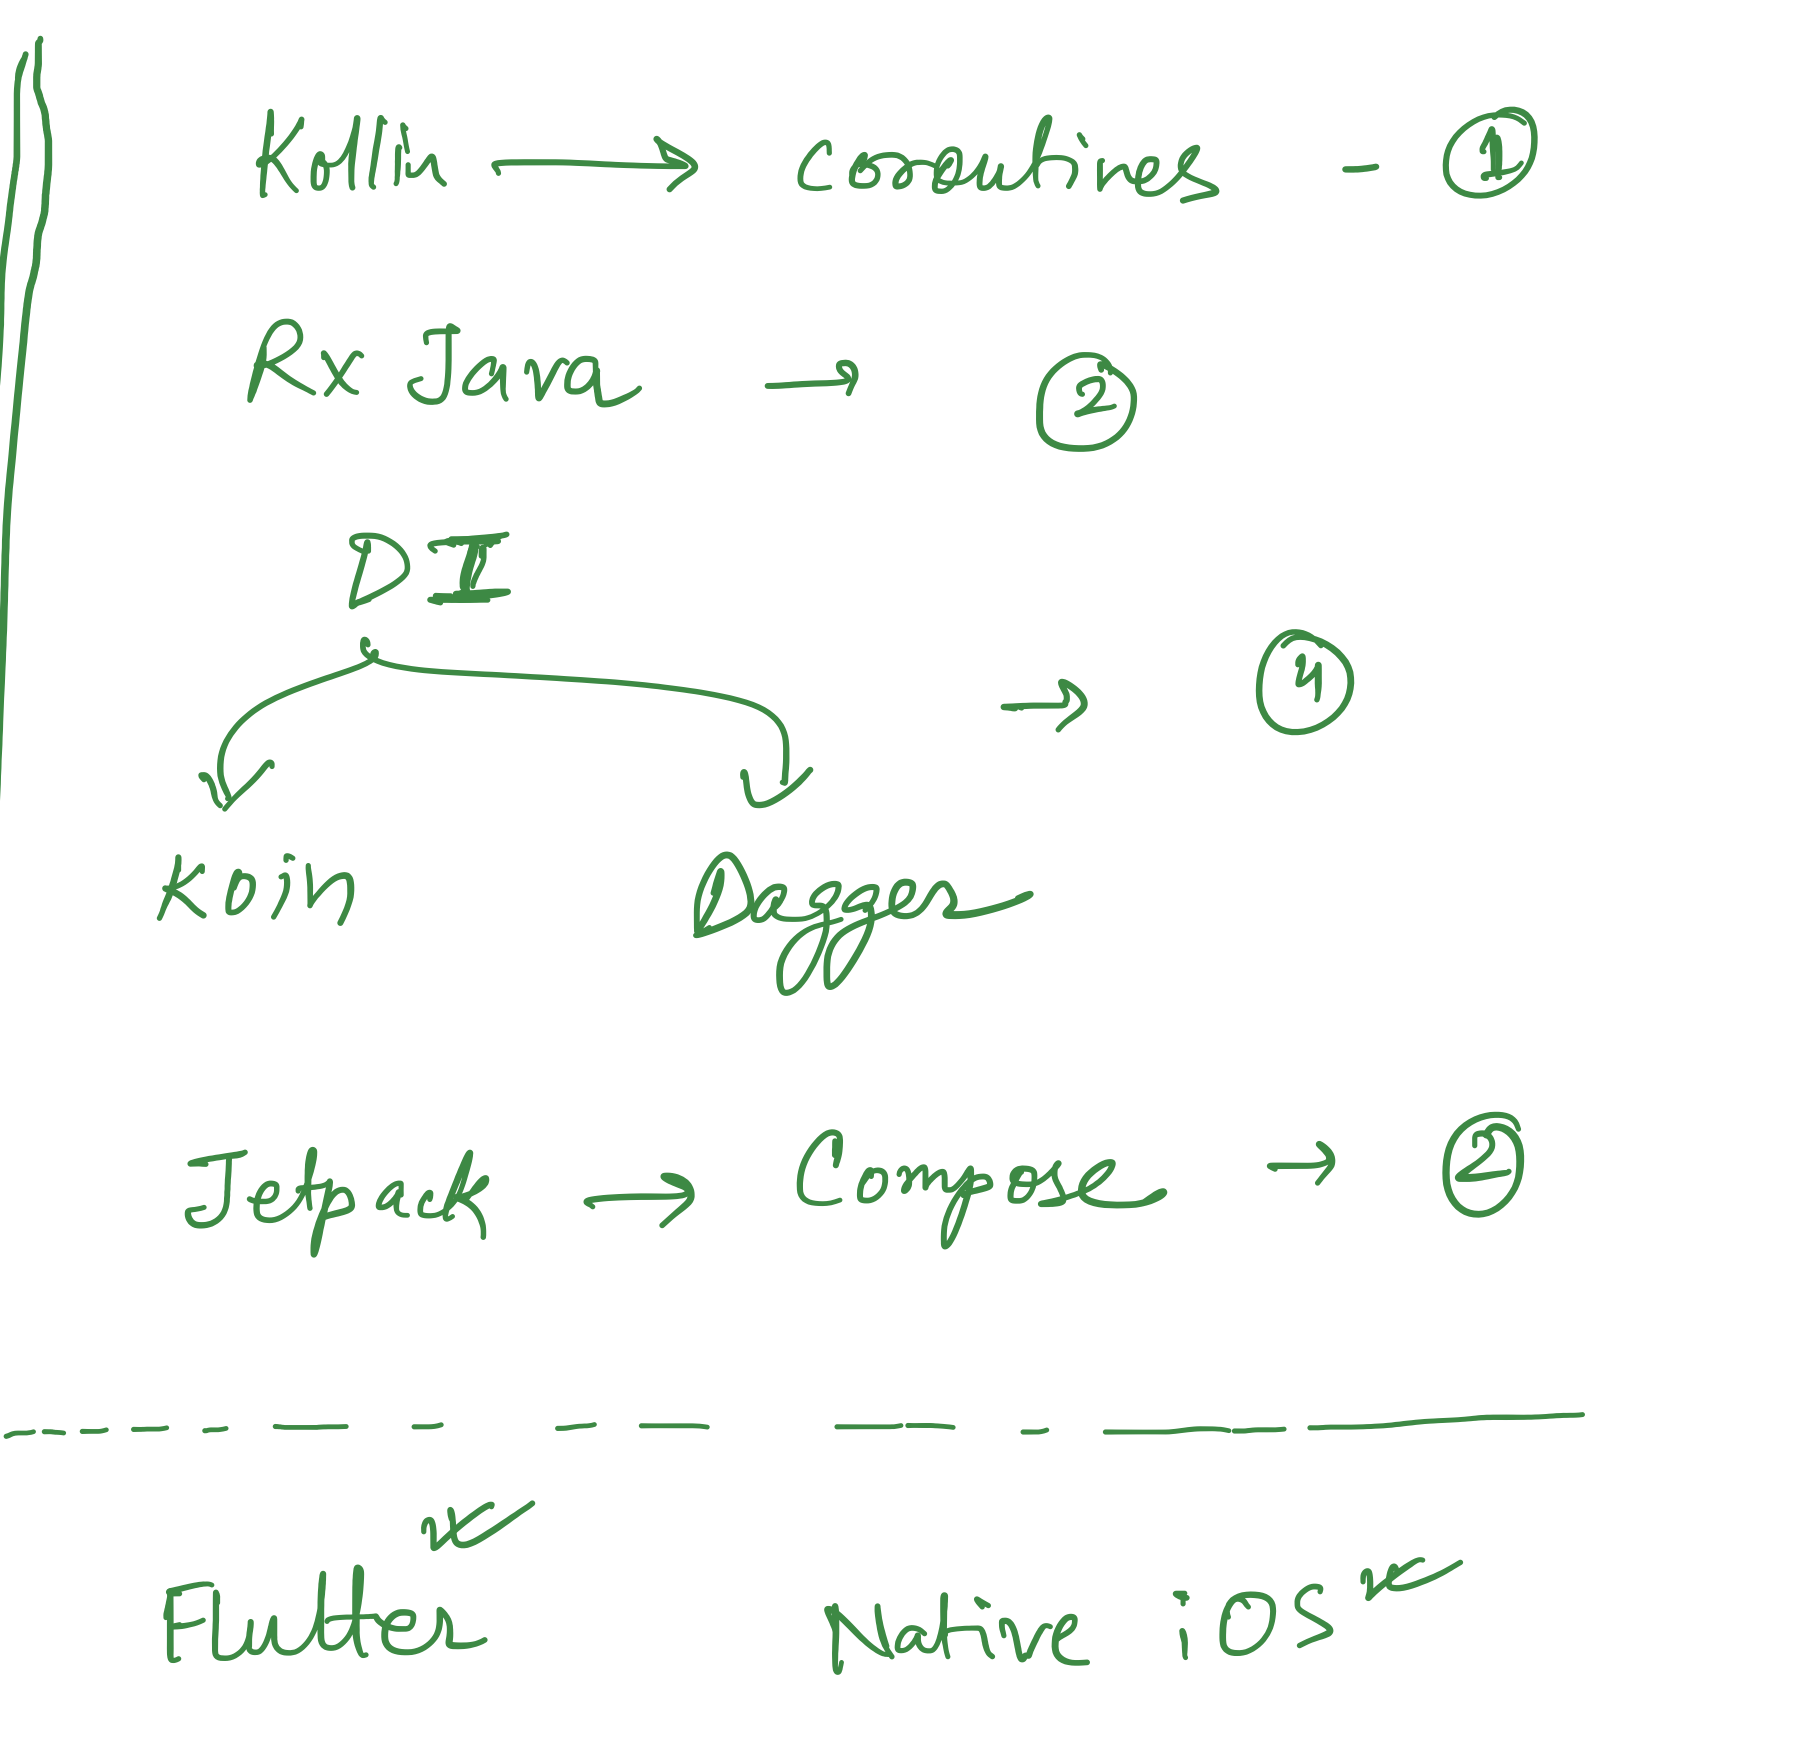 Kotlin → Coroutines - 1
Rx Java → 2
DI
→ 4
Koin Dagger
Jetpack → Compose → 2
Flutter ✓ Native iOS ✓